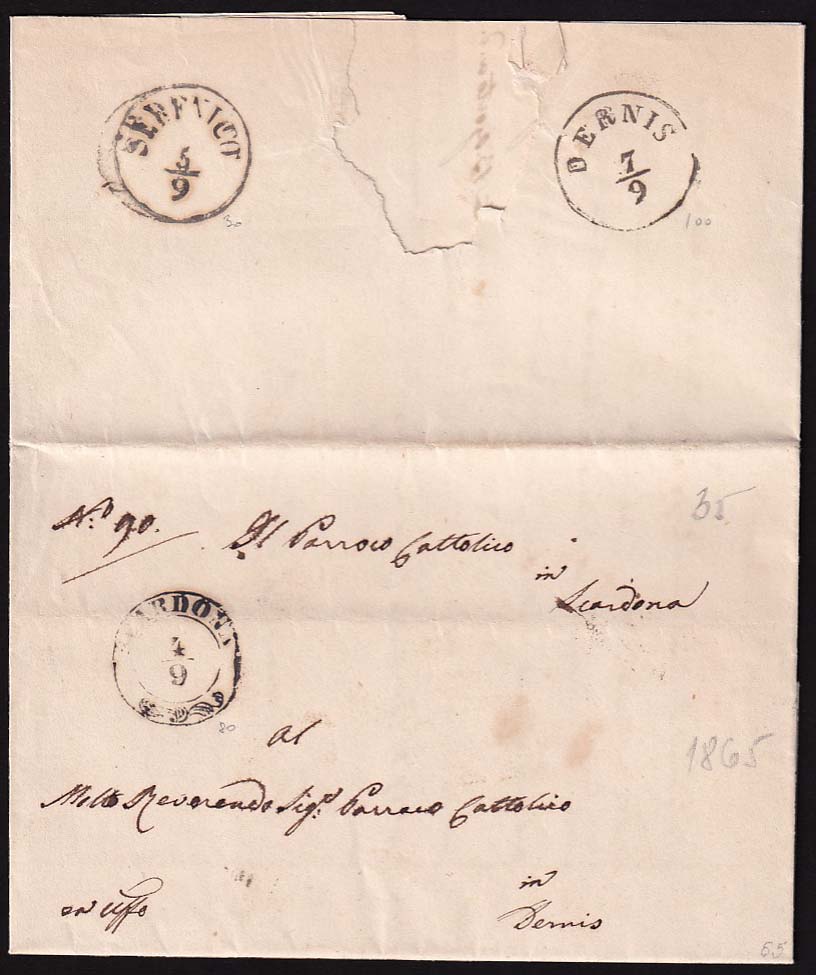 SEBENICO
5/9
30
DERNIS
7/9
100
65
N.º 90.
Il Parroco Cattolico
in
Scardona
SCARDONA
4/9
80
Al
1865
Molto Reverendo Sigr. Parroco Cattolico
in
Dernis
ex uffo
65